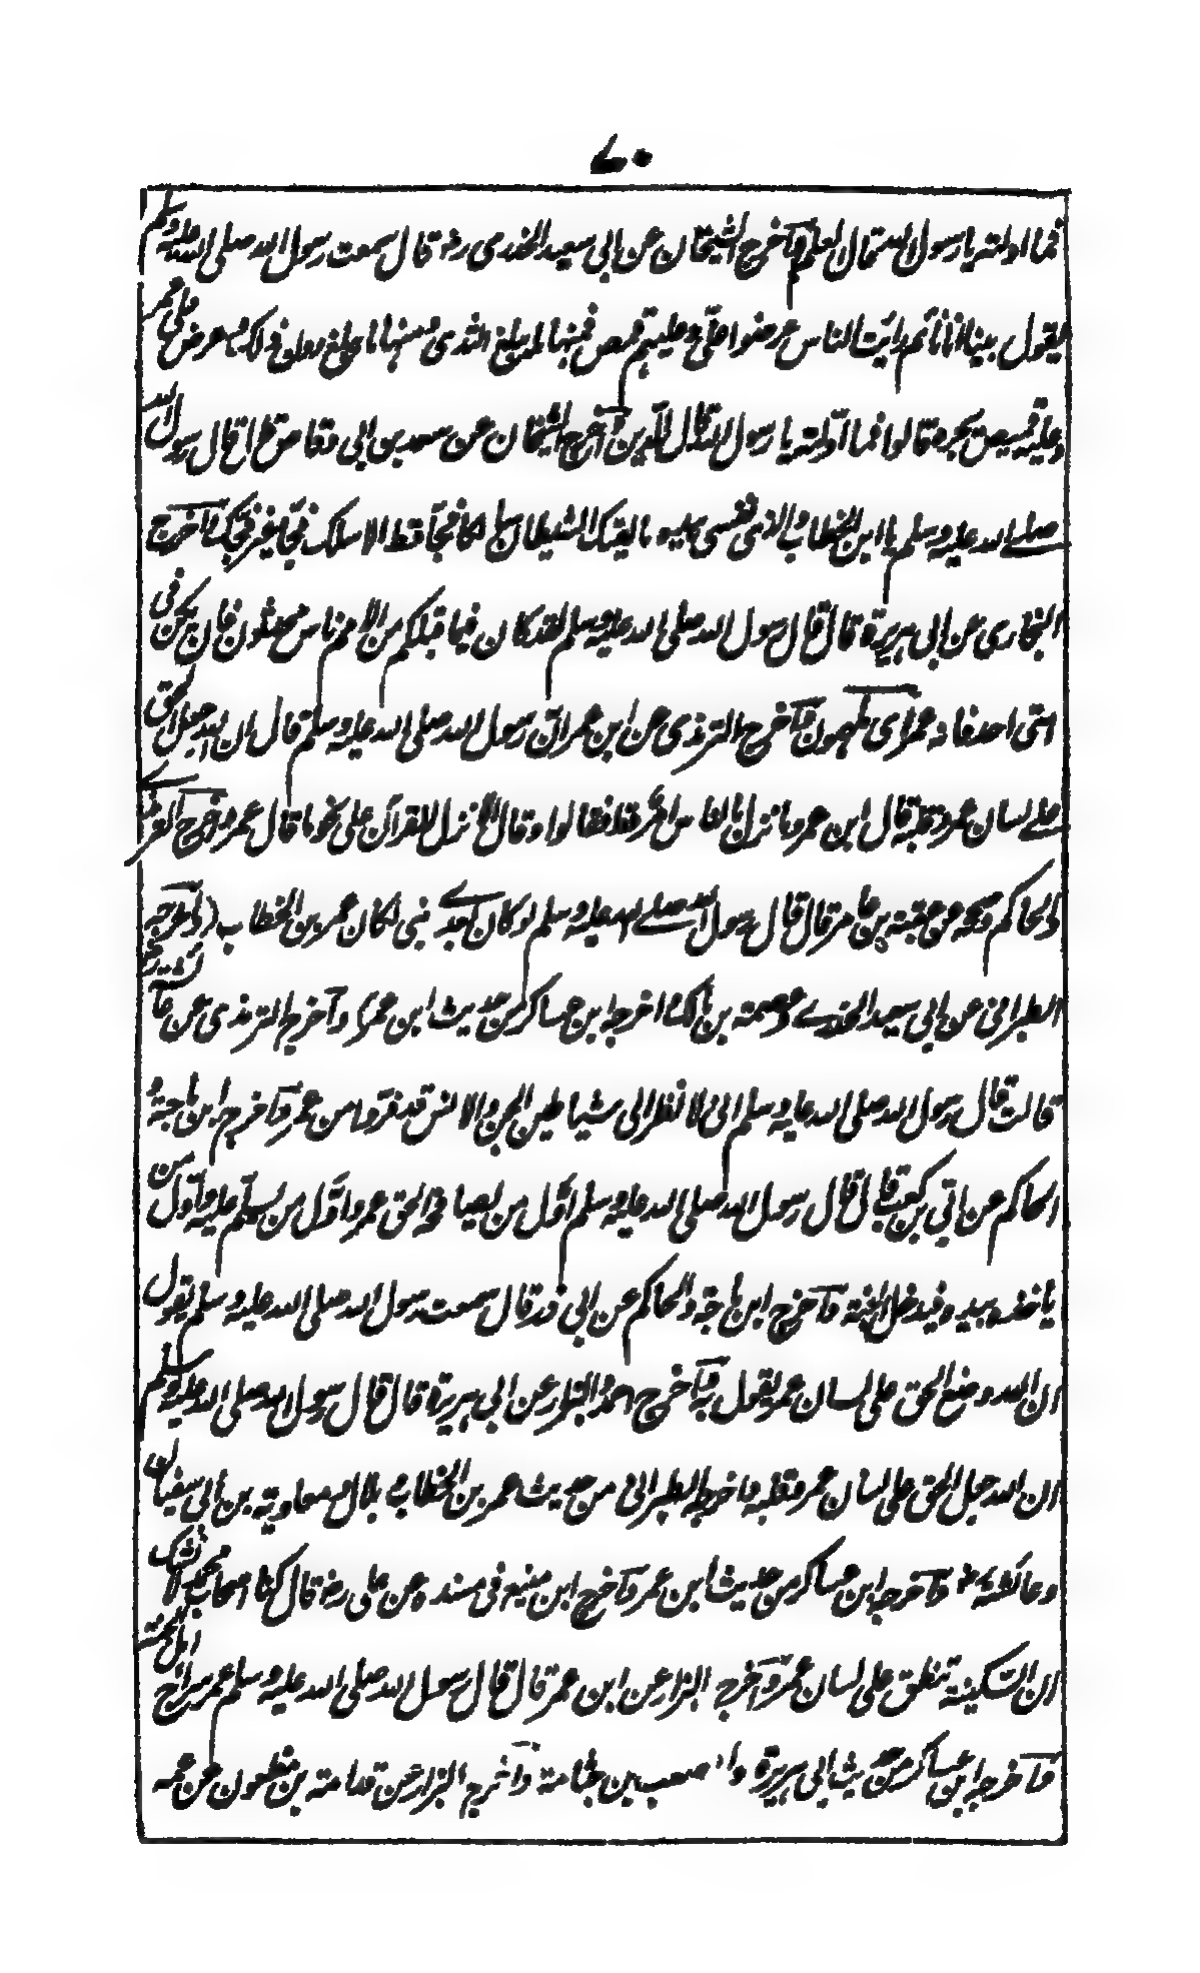 ٧٠
فما اولته يا رسول الله قال العلم وآخرج الشيخان عن ابي سعيد الخدري رضه قال سمعت رسول الله صلى الله عليه وسلم
يقول بينا انا نائم رايت الناس عرضوا علّي وعليهم قمص فمنها ما يبلغ الثدى ومنها ما يبلغ دون ذلك وعرض علي عمر
وعليه قميص يجره قالوا فما اوّلته يا رسول الله قال الدين وآخرج الشيخان عن سعد بن ابي وقاص قال قال رسول الله
صلے الله عليه وسلم يا ابن الخطاب والذى نفسى بيده ما لقيك الشيطان سالكا فجّا قط الا سلك فجّا غير فجّك وآخرج
البخارى عن ابي هريرة قال قال رسول الله صلى الله عليه وسلم لقد كان فيما قبلكم من الامم ناس محدثون فان يكن في
امتى احد فانه عمر اى ملهمون وآخرج الترمذى عن ابن عمر انّ رسول الله صلى الله عليه وسلم قال ان الله جعل الحق
علے لسان عمر وقلبه قال ابن عمر وما نزل بالناس امر قط فقالوا وقال الا نزل القرآن على نحو ما قال عمر وآخرج الترمذے
والحاكم وصححه عن عقبة بن عامر قال قال رسول الله صلے الله عليه وسلم لو كان بعدے نبى لكان عمر بن الخطاب (وآخرجه
الطبرانى عن ابي سعيد الخدرے وعصمة بن مالك واخرجه ابن عساكر من حديث ابن عمر) وآخرج الترمذى عن عائشة
قالت قال رسول الله صلى الله عليه وسلم انى لا نظر الى شياطين الجن والانس قد فرّوا من عمر وآخرج ابن ماجة و
الحاكم عن ابّي بن كعب قال قال رسول الله صلى الله عليه وسلم اوّل من يصافحه الحق عمر واوّل من يسلّم عليه واوّل من
ياخذه بيده فيدخل الجنة وآخرج ابن ماجة والحاكم عن ابي ذر قال سمعت رسول الله صلى الله عليه وسلم يقول
ان الله وضع الحق على لسان عمر يقول به وآخرج احمد والبزار عن ابي هريرة قال قال رسول الله صلى الله عليه وسلم
ان الله جعل الحق على لسان عمر وقلبه واخرجه الطبرانى من حديث عمر بن الخطاب وبلال ومعاوية بن ابي سفيان
وعائشة رضه وآخرجه ابن عساكر من حديث ابن عمر وآخرج ابن منيع فى مسنده عن على رضه قال كنا اصحاب محمد لا نشك
ان السّكينة تنطق على لسان عمر وآخرج البزار عن ابن عمر قال قال رسول الله صلى الله عليه وسلم عمر سراج اهل الجنة
وآخرجه ابن عساكر من حديث ابي هريرة والصعب بن جثامة وآخرج البزار عن قدامة بن مظعون عن عمه